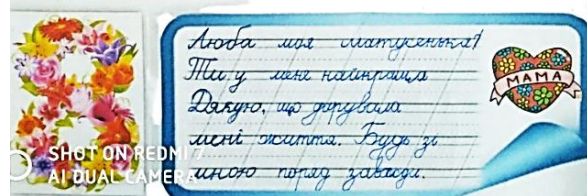 Люба моя матусенька!
Ти у мене найкраща
Дякую, що дарувала
мені життя. Будь зі
мною поряд завжди.
МАМА
SHOT ON REDMI 7
AI DUAL CAMERA